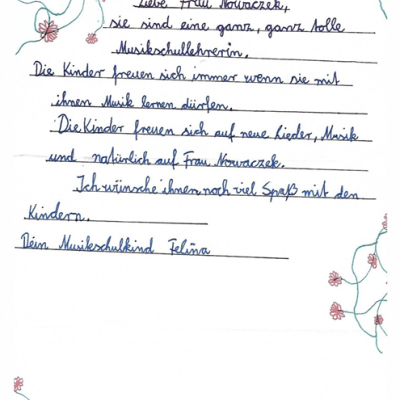 Liebe Frau Nowaczek,
sie sind eine ganz, ganz tolle
Musikschullehrerin.
Die Kinder freuen sich immer wenn sie mit
ihnen Musik lernen dürfen.
Die Kinder freuen sich auf neue Lieder, Musik
und natürlich auf Frau Nowaczek.
Ich wünsche ihnen noch viel Spaß mit den
Kindern.
Dein Musikschulkind Felina